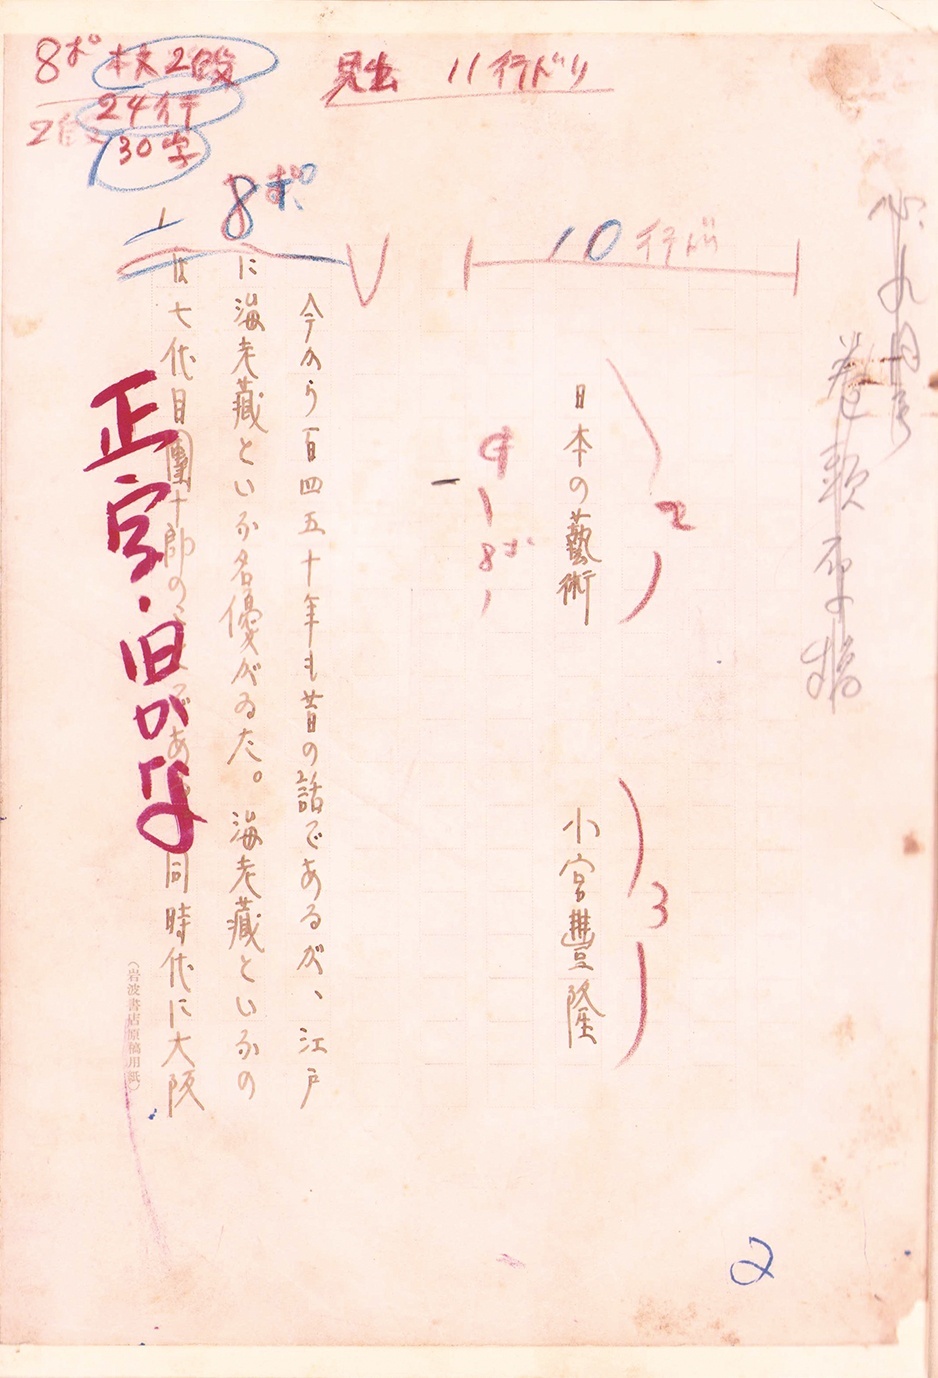 8ポ 本文2段
24行
30字
見出 11行ドリ
8ポ
10行ドリ
心 九月号
巻頭
日本の藝術
2
小宮豐隆
3
8ポ
今から百四五十年も昔の話であるが、江戸
に海老藏といふ名優がゐた。海老藏といふの
は七代目團十郎の
である
同時代に大阪
正字・旧かな
(岩波書店原稿用紙)
2